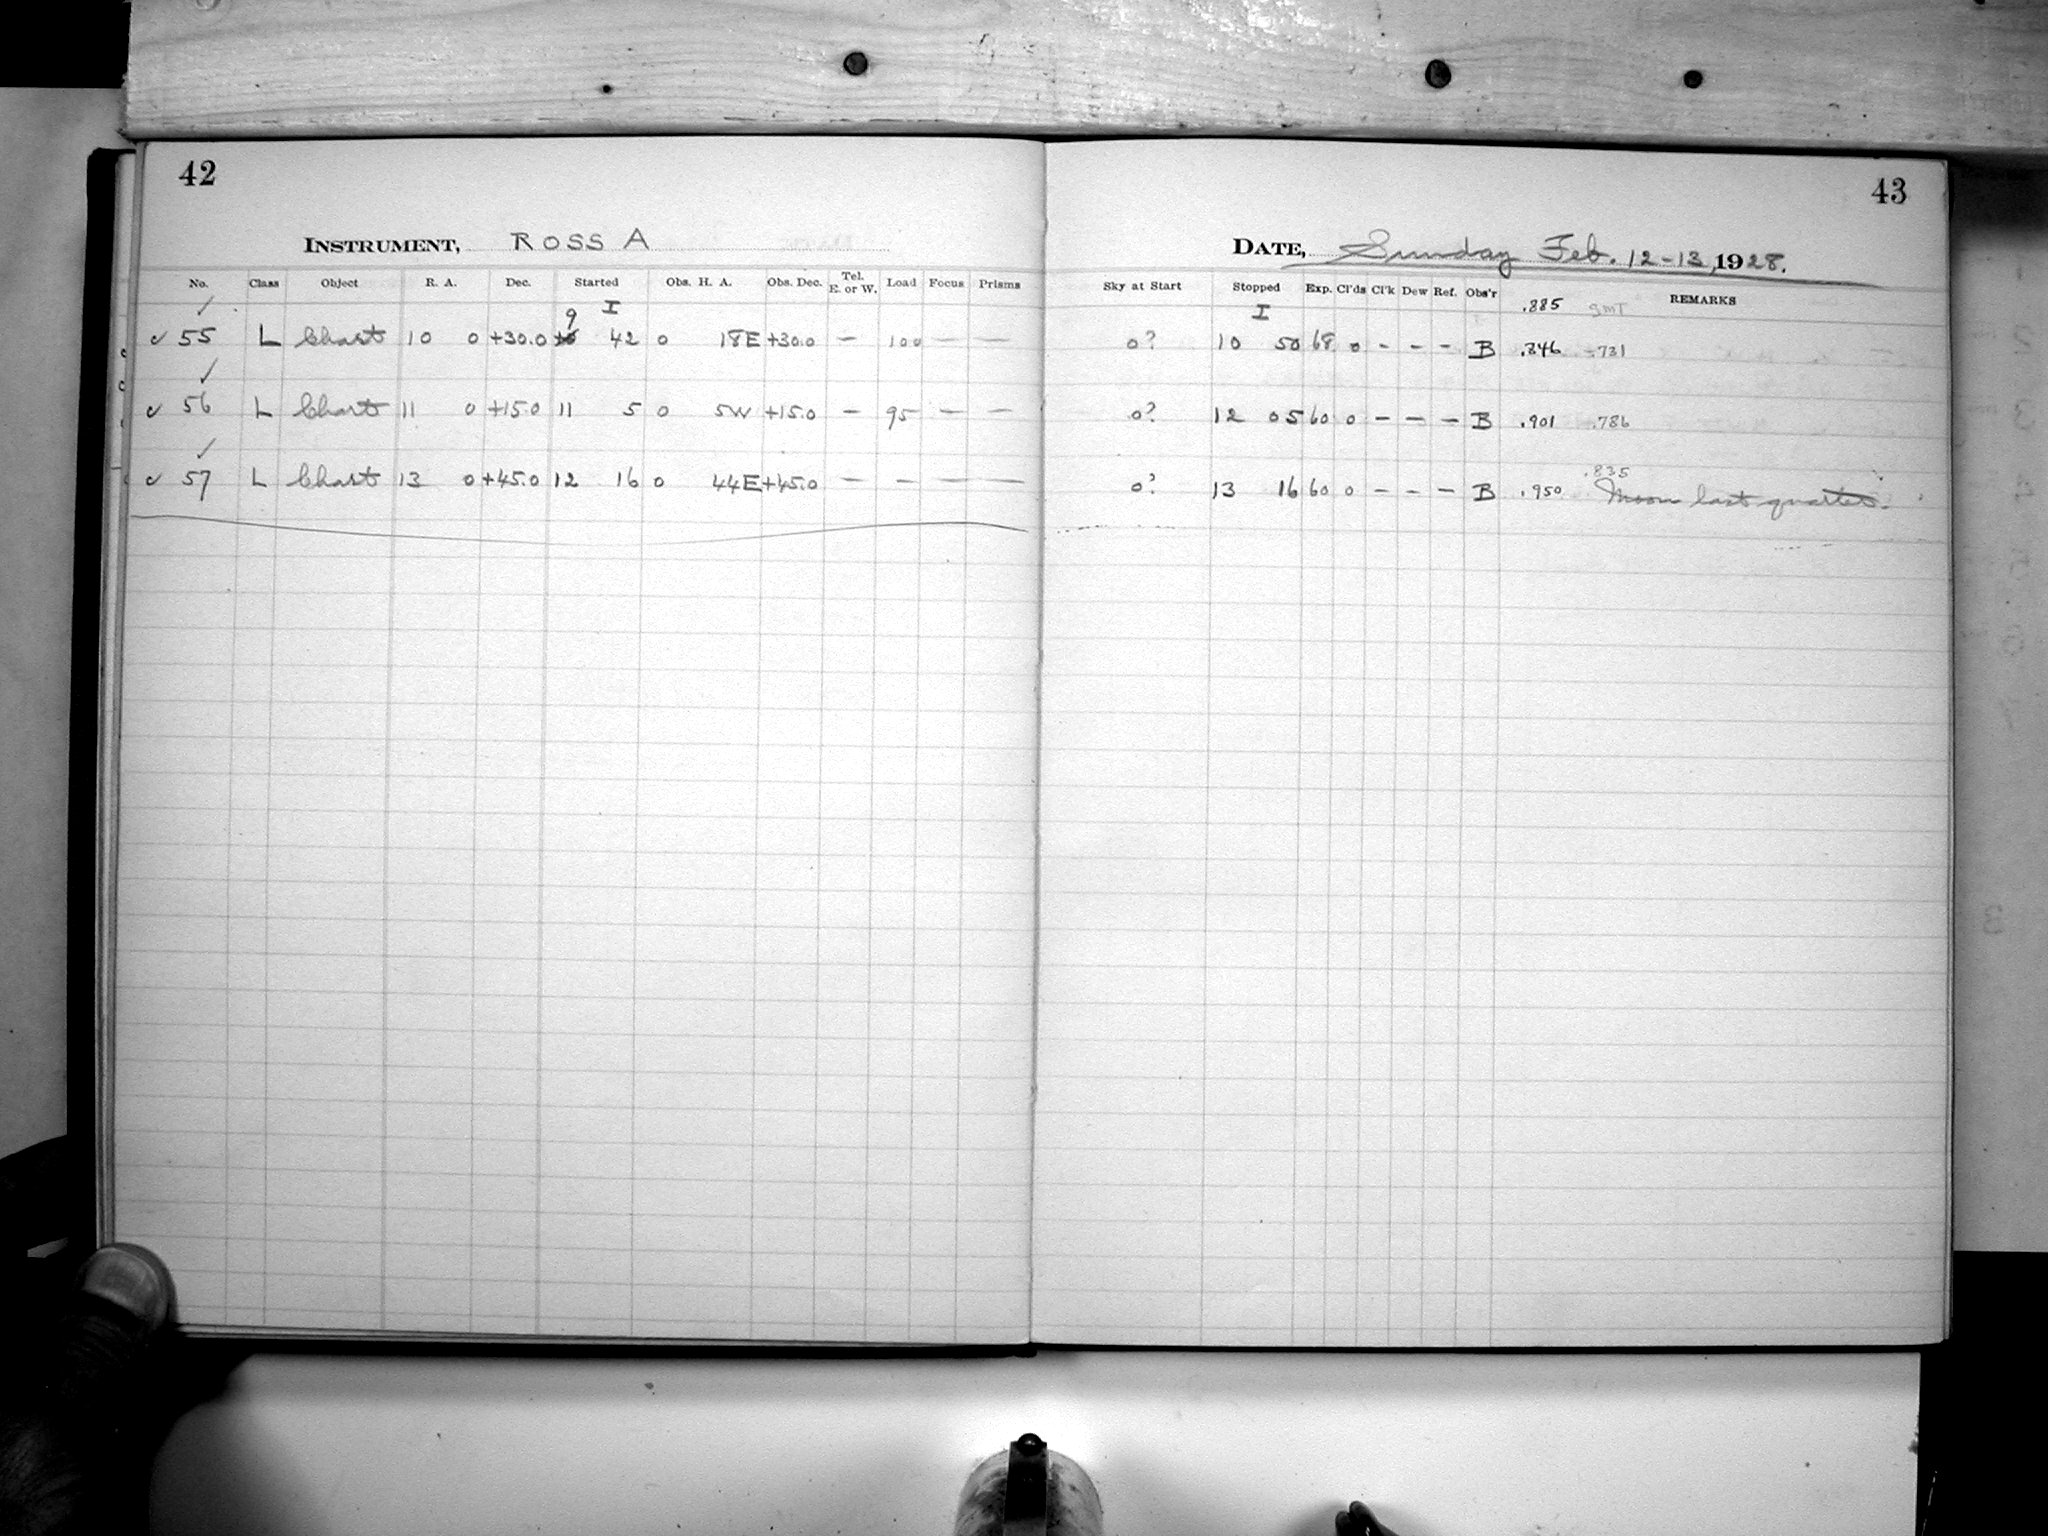 42
INSTRUMENT, ROSS A
No. Class Object R. A. Dec. Started Obs. H. A. Obs. Dec. Tel. E. or W. Load Focus Prisms
✓ 9 I
✓ 55 L Chart 10 0 +30.0 42 0 18E +30.0 — 100 — —
✓
✓ 56 L Chart 11 0 +15.0 11 5 0 5W +15.0 — 95 — —
✓
✓ 57 L Chart 13 0 +45.0 12 16 0 44E +45.0 — — — —
43
DATE, Sunday Feb. 12-13, 1928.
Sky at Start Stopped Exp. Cl'ds Cl'k Dew Ref. Obs'r REMARKS
I .885
0? 10 50 68 0 — — — B .846 .731
0? 12 05 60 0 — — — B .901 .786
.835
0? 13 16 60 0 — — — B .950 Moon last quarter.